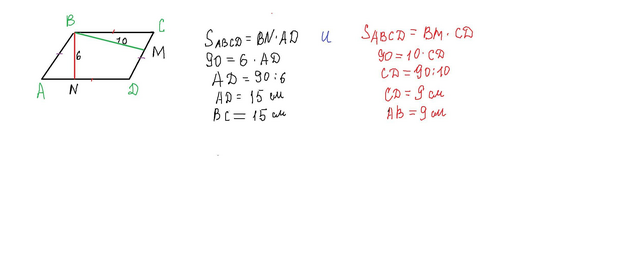 B
C
10
M
6
A
N
D
S ABCD = BN · AD
90 = 6 · AD
AD = 90 : 6
AD = 15 см
BC = 15 см
и
S ABCD = BM · CD
90 = 10 · CD
CD = 90 : 10
CD = 9 см
AB = 9 см